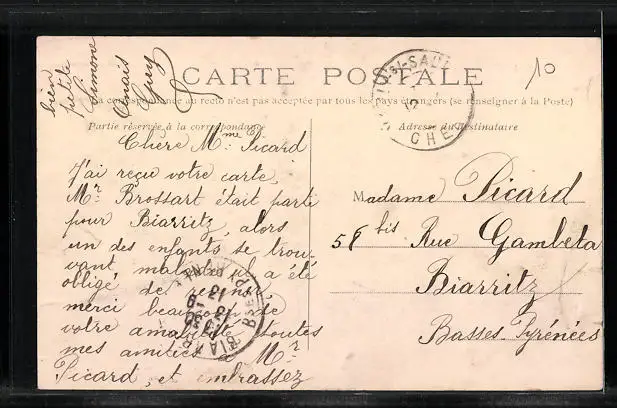 CARTE POSTALE
La correspondance au recto n'est pas acceptée par tous les pays étrangers (se renseigner à la Poste)
Partie réservée à la correspondance
Adresse du Destinataire
10
Chère Mme Picard
J'ai reçu votre carte,
Mr Brossart était parti
pour Biarritz, alors
un des enfants se trou-
vant malade il a été
obligé de revenir,
merci beaucoup de
votre amabilité toutes
mes amitiés à Mr
Picard, et embrassez
bien
petite
Simone
Anaïs
Guy
Madame Picard
58 bis Rue Gambeta
Biarritz
Basses-Pyrénées
CHER
BIARRITZ
Bses PYRENEES